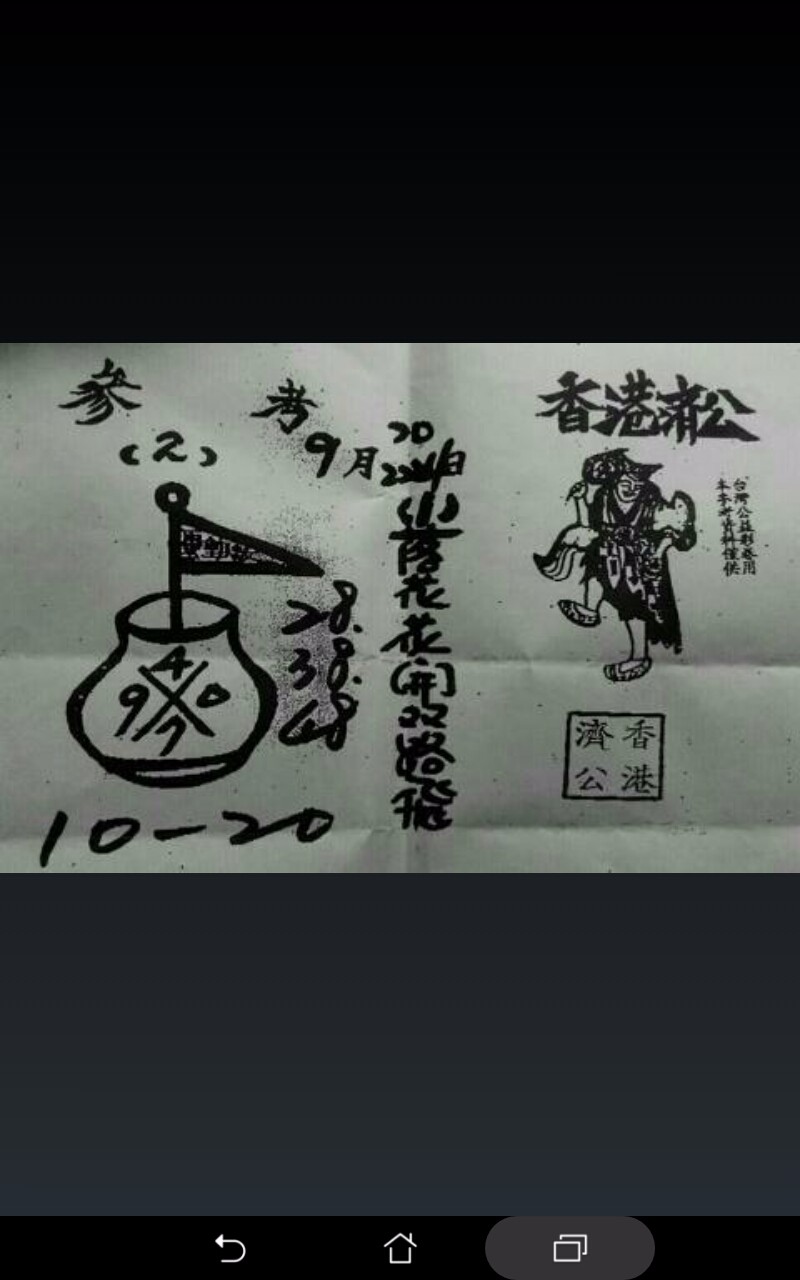 香港濟公
台灣公益彩卷用
本參考資料僅供
香港
濟公
參考
9月20
22 24日
(小)落花花(開)双路飛
(2)
4
9 0
7
28.
38.
48
10-20